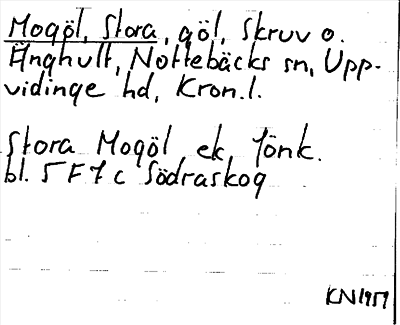 Mogöl, Stora, göl, Skruv o.
Änghult, Nottebäcks sn, Upp-
vidinge hd, Kron.l.
Stora Mogöl ek Jönk.
bl. 5 F 7 c Södraskog
KN 1957